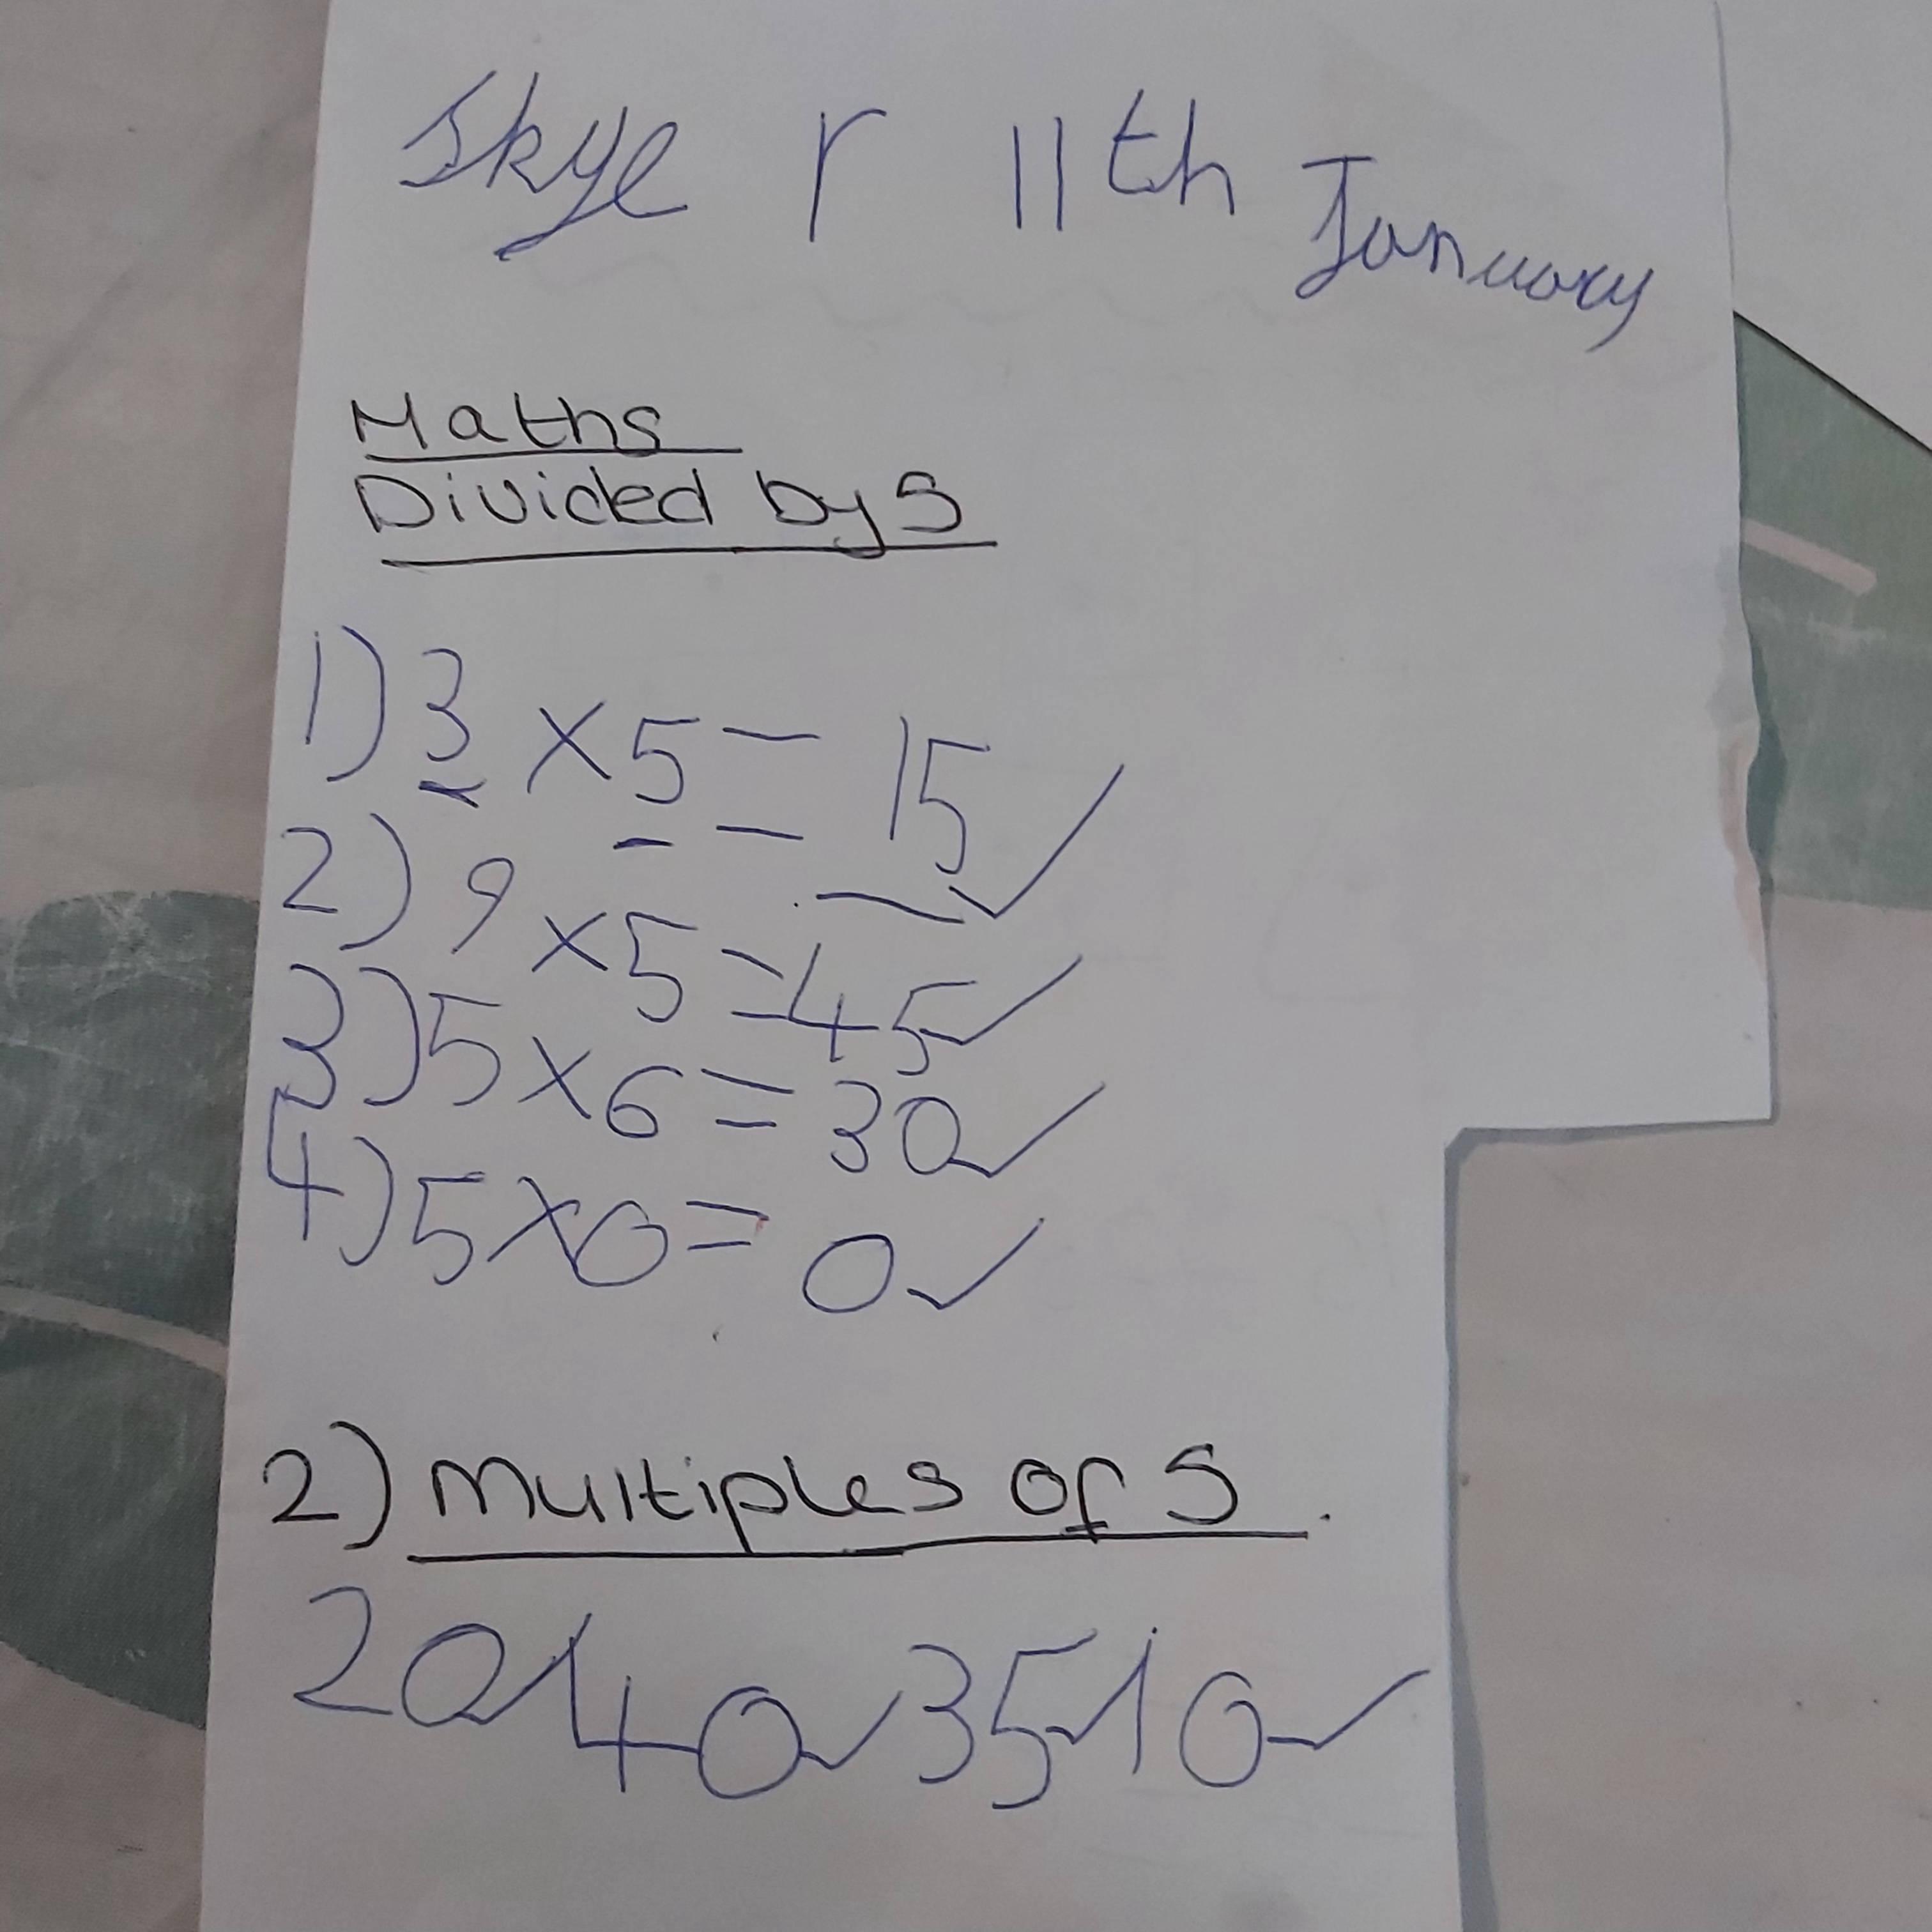 Skye r 11th January
Maths
Divided by 5
1) 3 × 5 = 15 ✓
2) 9 × 5 = 45 ✓
3) 5 × 6 = 30 ✓
4) 5 × 0 = 0 ✓
2) Multiples of 5.
20 ✓ 40 ✓ 35 ✓ 10 ✓